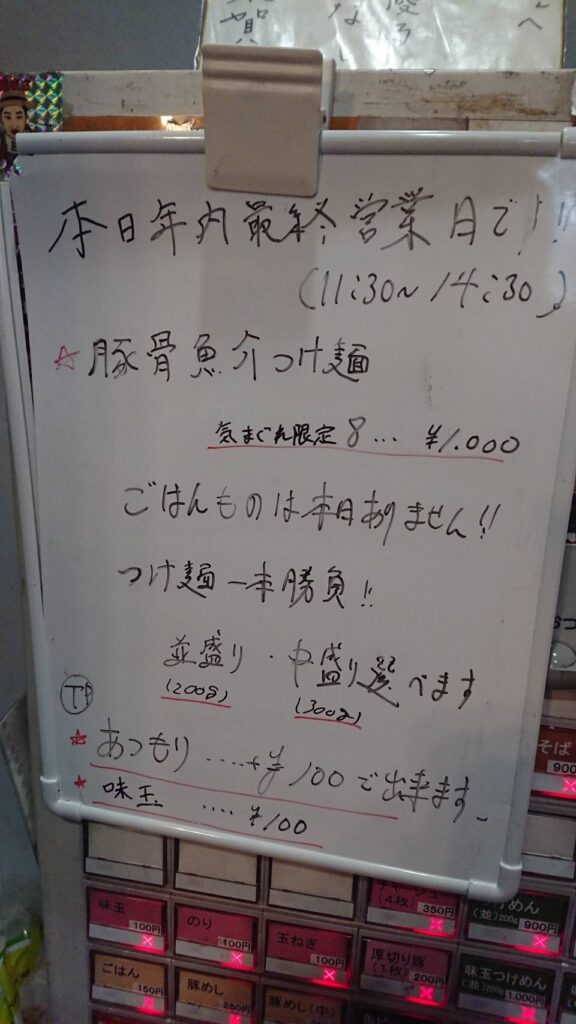 本日年内最終営業日で!!
(11:30〜14:30)
☆豚骨魚介つけ麺
気まぐれ限定8… ¥1.000
ごはんものは本日ありません!!
つけ麺一本勝負!!
並盛り・中盛り選べます
(200g) (300g)
☆あつもり……+¥100で出来ます。
★味玉 …. ¥100
そば
900
味玉
100円
のり
100円
玉ねぎ
100円
チャーシュー
(4枚) 350円
けめん
(並)200g 900円
ごはん
150円
豚めし
250円
豚めし(中)
厚切り豚
(1枚) 200円
味玉つけめん
(並)200g 1,000円